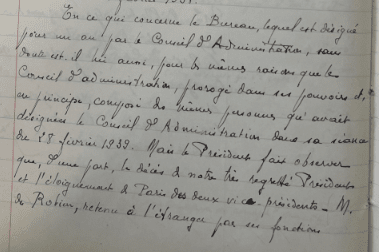 En ce qui concerne le Bureau, lequel est désigné
pour un an par le Conseil d'Administration, sans
doute est-il lui aussi, pour les mêmes raisons que le
Conseil d'administration, prorogé dans ses pouvoirs et,
en principe, composé des mêmes personnes qu'avait
désignées le Conseil d'Administration dans sa séance
de 28 février 1939. Mais le Président fait observer
que, d'une part, le décès de notre très regretté Président
et l'éloignement de Paris des deux vice-présidents - M.
de Robien, retenu à l'étranger par ses fonctions